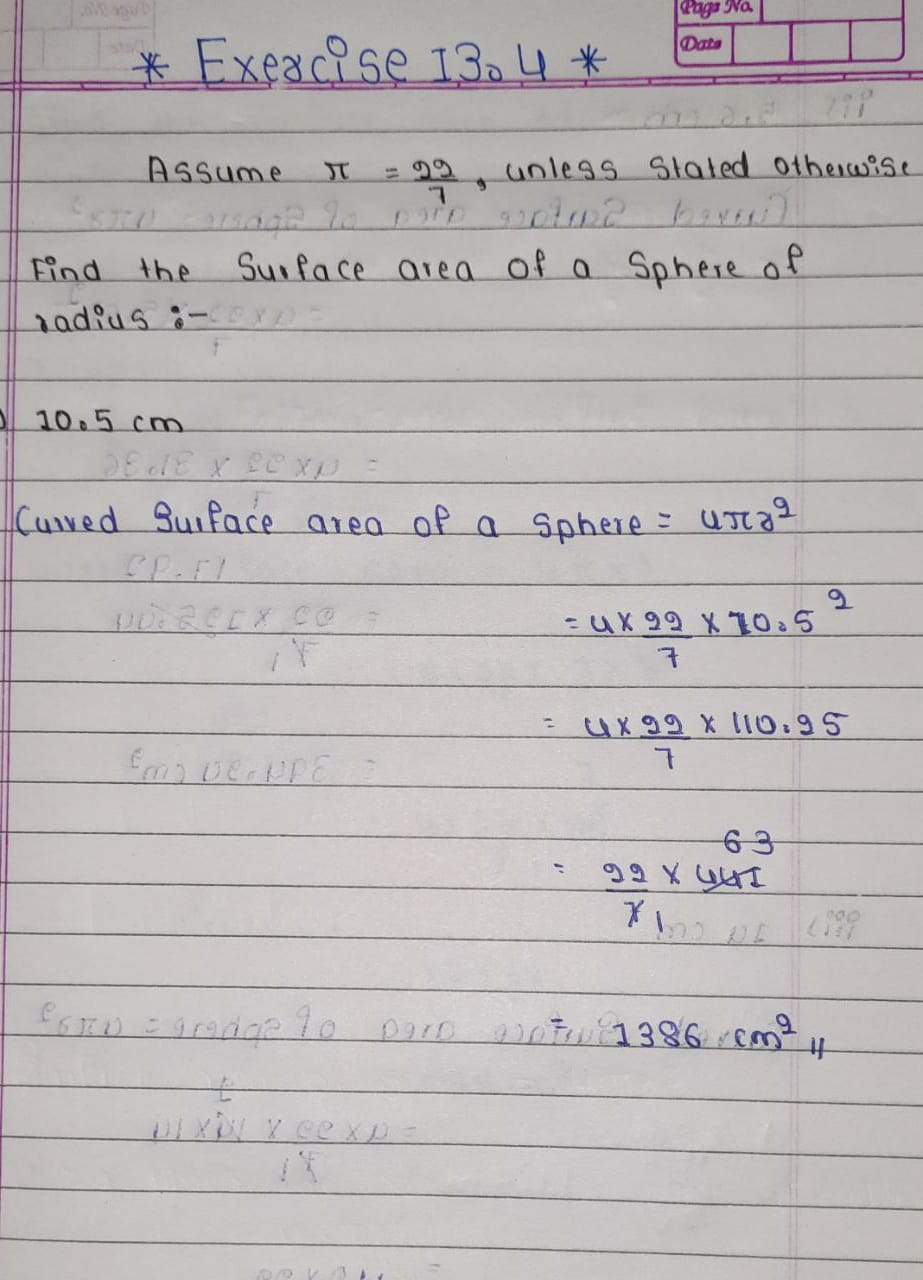 Page No.
Date
* Exercise 13.4 *
Assume π = 22/7, unless Stated Otherwise
Find the Surface area of a Sphere of
radius :-
10.5 cm
Curved Surface area of a Sphere = 4πr²
= 4 x 22/7 x 10.5²
= 4 x 22/7 x 110.25
63
= 22/7 x 441
1
= 1386 cm² "